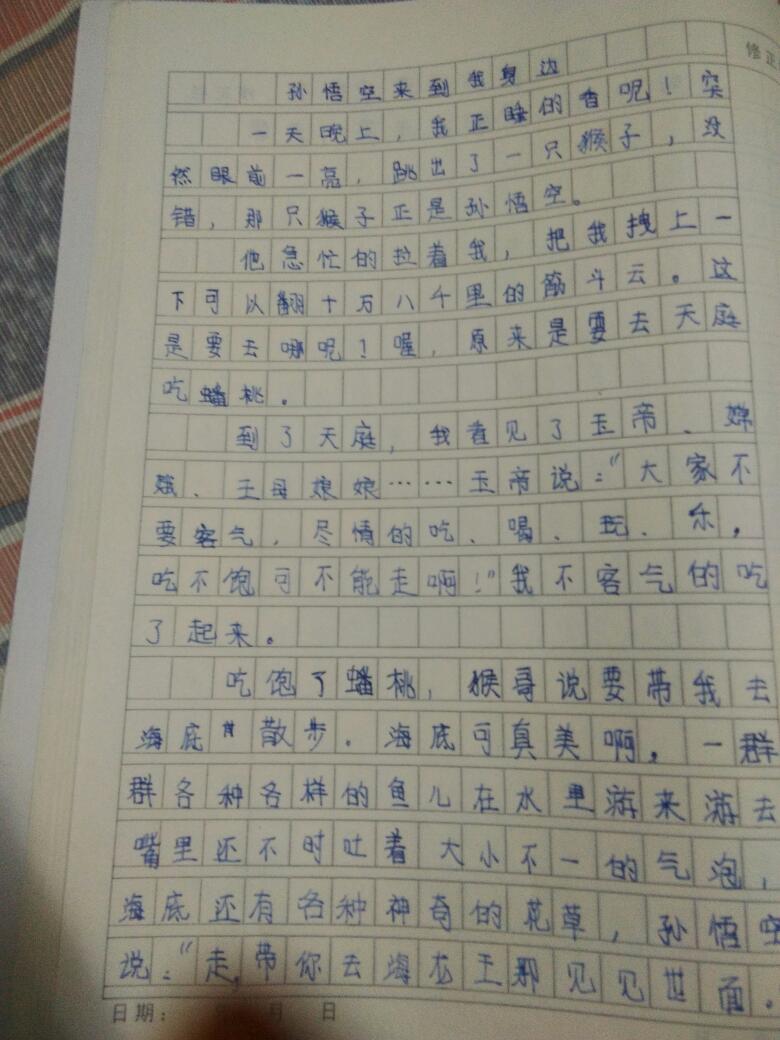 修正
孙悟空来到我身边
一天晚上，我正睡的香呢！突
然眼前一亮，跳出了一只猴子，没
错，那只猴子正是孙悟空。
他急忙的拉着我，把我拽上一
下可以翻十万八千里的筋斗云。这
是要去哪呢！喔，原来是要去天庭
吃蟠桃。
到了天庭，我看见了玉帝、嫦
娥、王母娘娘……玉帝说：“大家不
要客气，尽情的吃、喝、玩、乐，
吃不饱可不能走啊！”我不客气的吃
了起来。
吃饱了蟠桃，猴哥说要带我去
海底散步．海底可真美啊，一群
群各种各样的鱼儿在水里游来游去
嘴里还不时吐着大小不一的气泡，
海底还有各种神奇的花草，孙悟空
说：“走，带你去海龙王那见见世面。
日期： 月 日